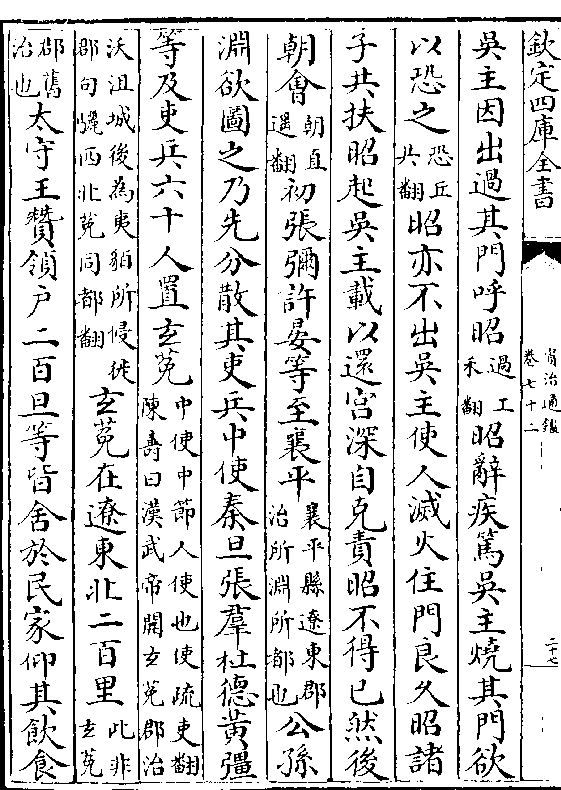 欽定四庫全書
資治通鑑
卷七十二
二十七
吳主因出過其門呼昭過工禾翻昭辭疾篤吳主燒其門欲
以恐之恐丘共翻昭亦不出吳主使人滅火住門良久昭諸
子共扶昭起吳主載以還宮深自克責昭不得已然後
朝會朝直遥翻初張彌許晏等至襄平襄平縣遼東郡治所淵所都也公孫
淵欲圖之乃先分散其吏兵中使秦旦張羣杜德黃彊
等及吏兵六十人置玄菟中使中節人使也使疏吏翻陳壽曰漢武帝開玄菟郡治
沃沮城後為夷貊所侵徙郡句驪西北菟同都翻玄菟在遼東北二百里此非玄菟
郡舊治也太守王贊領戶二百旦等皆舍於民家仰其飲食